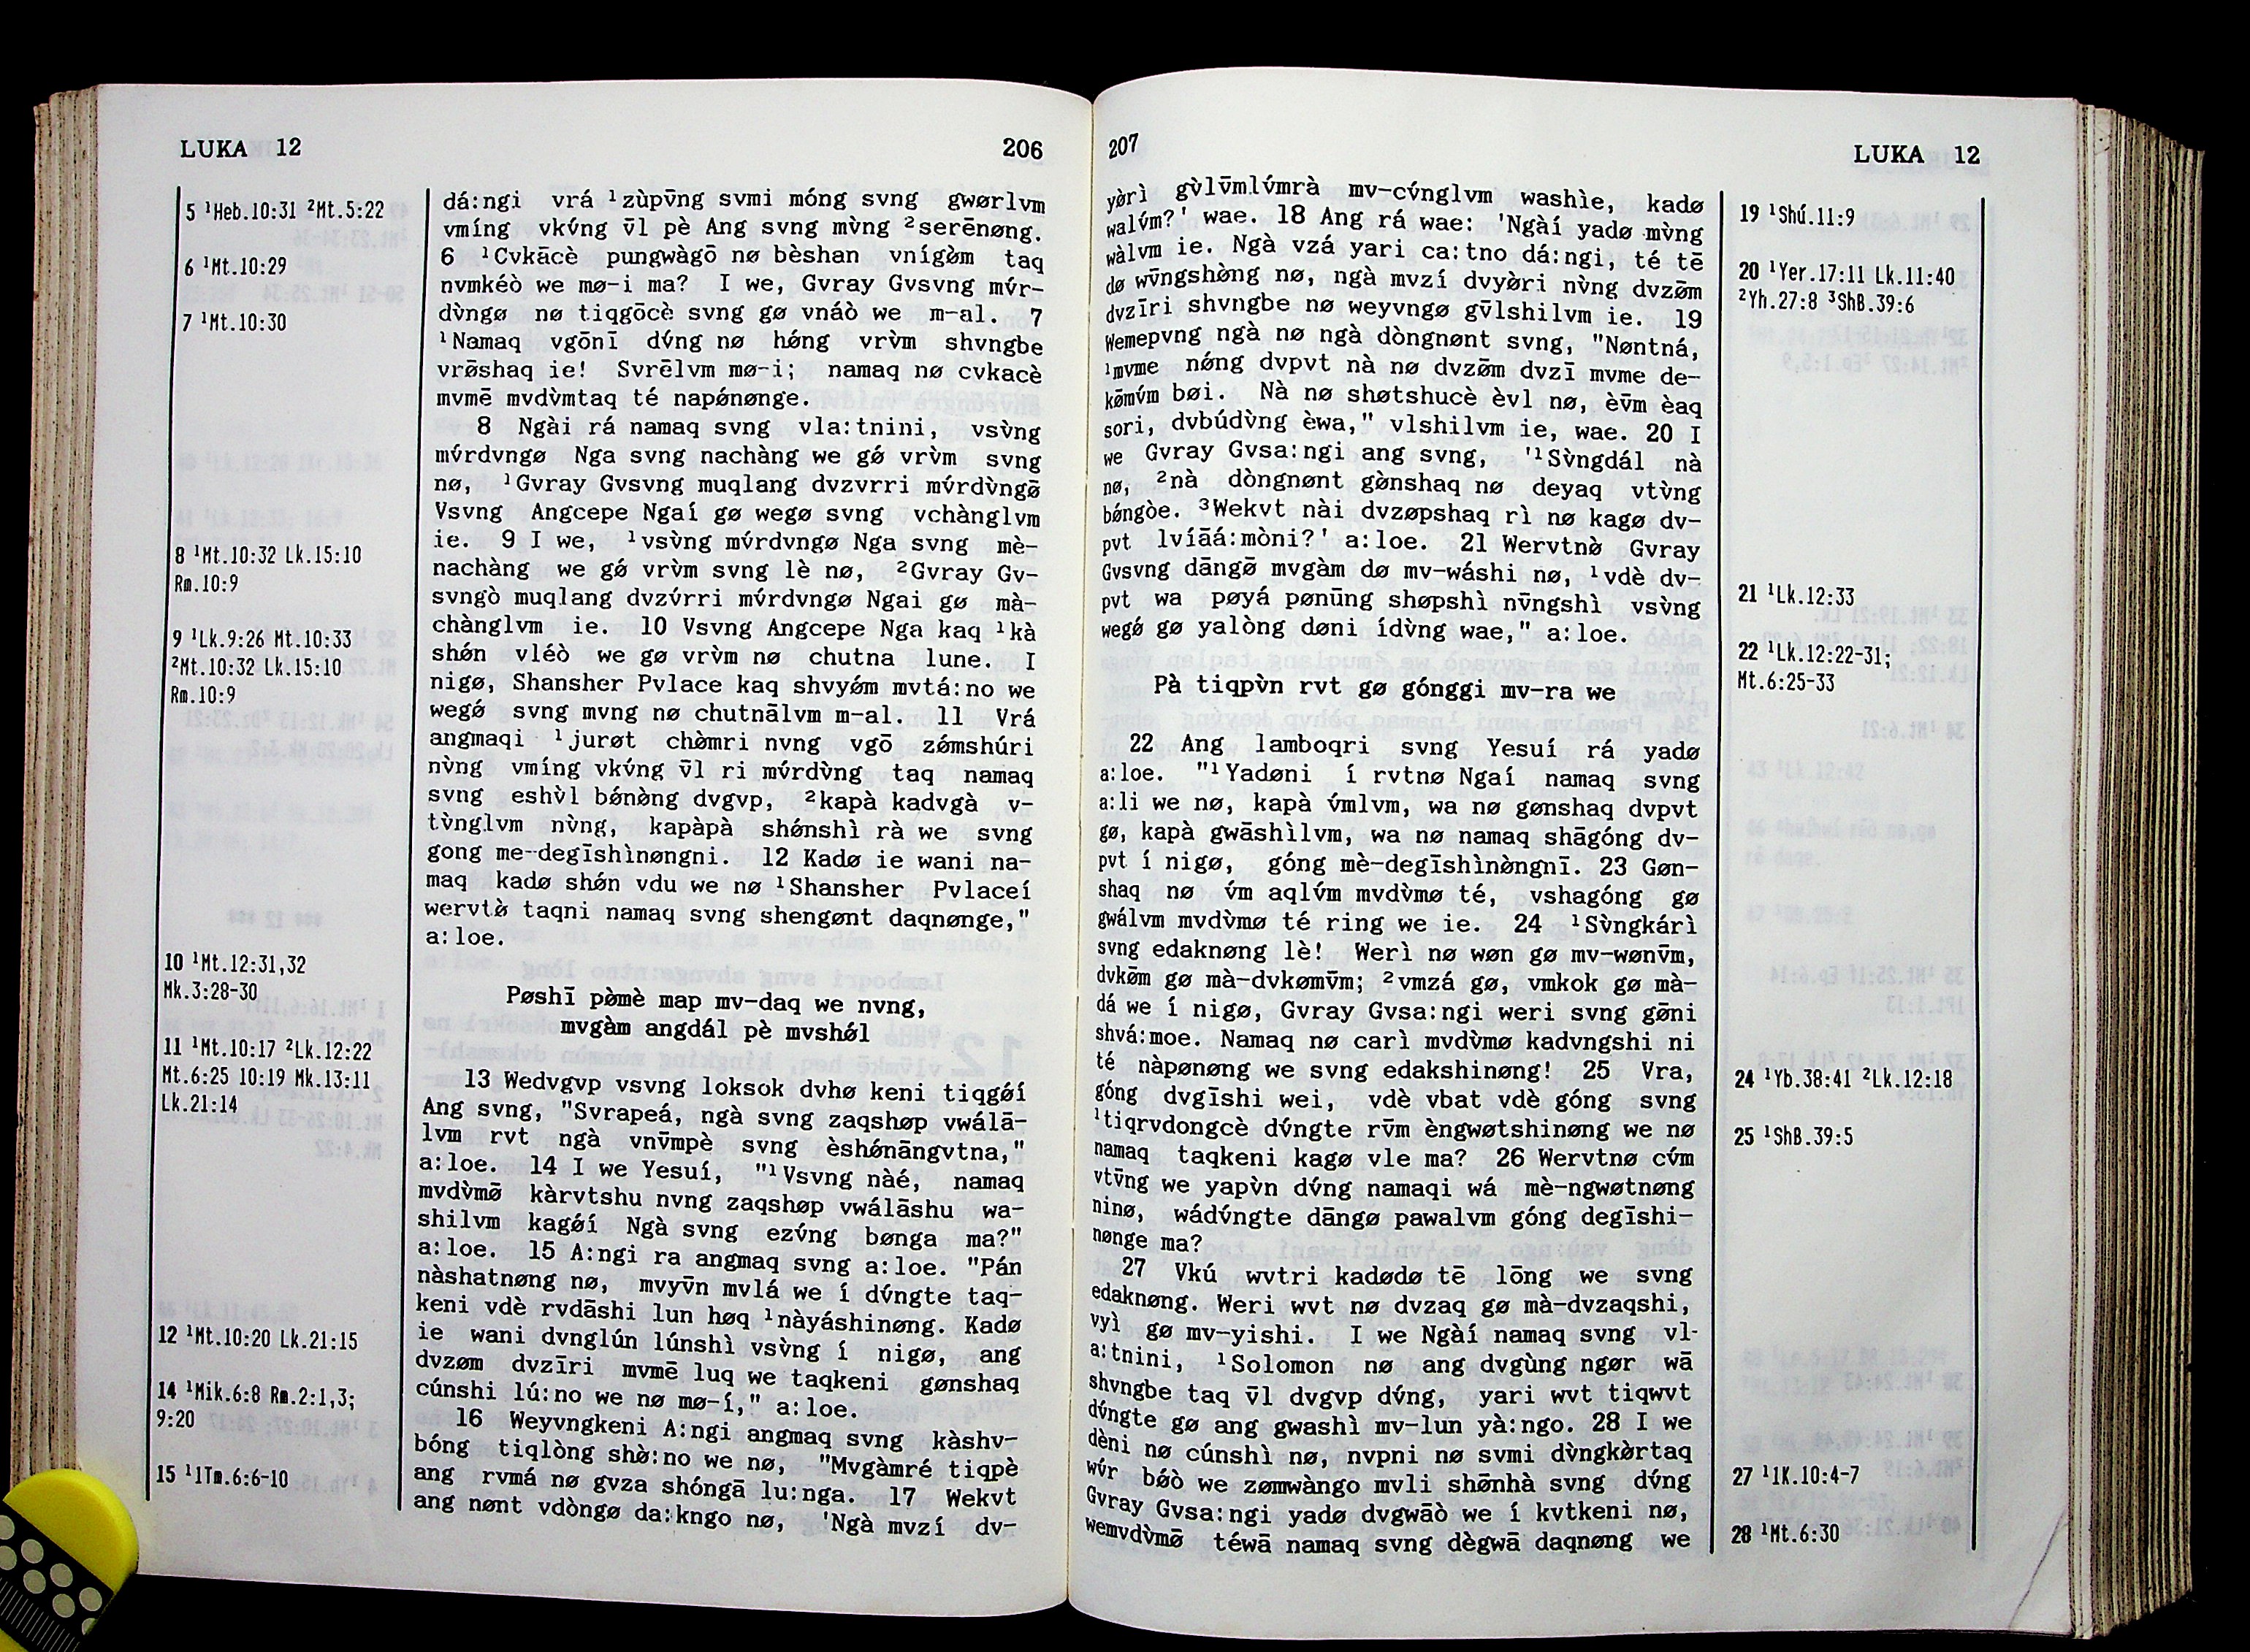 LUKA 12
206
5 ¹Heb.10:31 ²Mt.5:22
6 ¹Mt.10:29
7 ¹Mt.10:30
8 ¹Mt.10:32 Lk.15:10
Rm.10:9
9 ¹Lk.9:26 Mt.10:33
²Mt.10:32 Lk.15:10
Rm.10:9
10 ¹Mt.12:31,32
Mk.3:28-30
11 ¹Mt.10:17 ²Lk.12:22
Mt.6:25 10:19 Mk.13:11
Lk.21:14
12 ¹Mt.10:20 Lk.21:15
14 ¹Mik.6:8 Rm.2:1,3;
9:20
15 ¹1Tm.6:6-10
dá:ngi vrá ¹zùpv̄ng svmi móng svng gwørlvm
vmíng vkv́ng v̄l pè Ang svng mv̀ng ²serēnøng.
6 ¹Cvkācè pungwàgō nø bèshan vnígø̀m taq
nvmkéò we mø-i ma? I we, Gvray Gvsvng mv́r-
dv̀ngø nø tiqgōcè svng gø vnáò we m-al. 7
¹Namaq vgōnī dv́ng nø hǿng vrv̀m shvngbe
vrø̄shaq ie! Svrēlvm mø-i; namaq nø cvkacè
mvmē mvdv̀mtaq té napǿnønge.
8 Ngài rá namaq svng vla:tnini, vsv̀ng
mv́rdvngø Nga svng nachàng we gǿ vrv̀m svng
nø, ¹Gvray Gvsvng muqlang dvzvrri mv́rdv̀ngø̄
Vsvng Angcepe Ngaí gø wegø svng vchànglvm
ie. 9 I we, ¹vsv̀ng mv́rdvngø Nga svng mè-
nachàng we gǿ vrv̀m svng lè nø, ²Gvray Gv-
svngò muqlang dvzv́rri mv́rdvngø Ngai gø mà-
chànglvm ie. 10 Vsvng Angcepe Nga kaq ¹kà
shǿn vléò we gø vrv̀m nø chutna lune. I
nigø, Shansher Pvlace kaq shvyǿm mvtá:no we
wegǿ svng mvng nø chutnālvm m-al. 11 Vrá
angmaqi ¹jurøt chø̀mri nvng vgō zǿmshúri
nv̀ng vmíng vkv́ng v̄l ri mv́rdv̀ng taq namaq
svng eshv̀l bǿnø̀ng dvgvp, ²kapà kadvgà v-
tv̀nglvm nv̀ng, kapàpà shǿnshì rà we svng
gong me-degīshìnøngni. 12 Kadø ie wani na-
maq kadø shǿn vdu we nø ¹Shansher Pvlaceí
wervtø̀ taqni namaq svng shengønt daqnønge,"
a:loe.
Pøshī pø̀mè map mv-daq we nvng,
mvgàm angdál pè mvshǿl
13 Wedvgvp vsvng loksok dvhø keni tiqgǿí
Ang svng, "Svrapeá, ngà svng zaqshøp vwálā-
lvm rvt ngà vnv̄mpè svng èshǿnāngvtna,"
a:loe. 14 I we Yesuí, "¹Vsvng nàé, namaq
mvdv̀mø̄ kàrvtshu nvng zaqshøp vwálāshu wa-
shilvm kagǿí Ngà svng ezv́ng bønga ma?"
a:loe. 15 A:ngi ra angmaq svng a:loe. "Pán
nàshatnøng nø, mvyv̄n mvlá we í dv́ngte taq-
keni vdè rvdāshi lun høq ¹nàyáshinøng. Kadø
ie wani dvnglún lúnshì vsv̀ng í nigø, ang
dvzøm dvzīri mvmē luq we taqkeni gønshaq
cúnshi lú:no we nø mø-í," a:loe.
16 Weyvngkeni A:ngi angmaq svng kàshv-
bóng tiqlòng shø̀:no we nø, "Mvgàmré tiqpè
ang rvmá nø gvza shóngā lu:nga. 17 Wekvt
ang nønt vdòngø da:kngo nø, 'Ngà mvzí dv-
207
LUKA 12
yø̀rì gv̀lv̄mlv́mrà mv-cv́nglvm washìe, kadø
walv́m?' wae. 18 Ang rá wae: 'Ngàí yadø mv̀ng
wàlvm ie. Ngà vzá yari ca:tno dá:ngi, té tē
dø wv̄ngshø̀ng nø, ngà mvzí dvyø̀ri nv̀ng dvzø̄m
dvzīri shvngbe nø weyvngø gv̄lshilvm ie. 19
Wemepvng ngà nø ngà dòngnønt svng, "Nøntná,
¹mvme nǿng dvpvt nà nø dvzø̄m dvzī mvme de-
kø̄mv́m bøi. Nà nø shøtshucè èvl nø, èv̄m èaq
sori, dvbúdv̀ng èwa," vlshilvm ie, wae. 20 I
we Gvray Gvsa:ngi ang svng, '¹Sv̀ngdál nà
nø, ²nà dòngnønt gø̀nshaq nø deyaq vtv̀ng
bǿngòe. ³Wekvt nài dvzøpshaq rì nø kagø dv-
pvt lvíāá:mòni?' a:loe. 21 Wervtnø̀ Gvray
Gvsvng dāngø̄ mvgàm dø mv-wáshi nø, ¹vdè dv-
pvt wa pøyá pønūng shøpshì nv̄ngshì vsv̀ng
wegǿ gø yalòng døni ídv̀ng wae," a:loe.
Pà tiqpv̀n rvt gø gónggi mv-ra we
22 Ang lamboqri svng Yesuí rá yadø
a:loe. "¹Yadøni í rvtnø Ngaí namaq svng
a:li we nø, kapà v́mlvm, wa nø gønshaq dvpvt
gø, kapà gwāshìlvm, wa nø namaq shāgóng dv-
pvt í nigø, góng mè-degīshìnø̀ngnī. 23 Gøn-
shaq nø v́m aqlv́m mvdv̀mø té, vshagóng gø
gwálvm mvdv̀mø té ring we ie. 24 ¹Sv̀ngkárì
svng edaknøng lè! Werì nø wøn gø mv-wønv̄m,
dvkø̄m gø mà-dvkømv̄m; ²vmzá gø, vmkok gø mà-
dá we í nigø, Gvray Gvsa:ngi weri svng gø̄ni
shvá:moe. Namaq nø carì mvdv̀mø kadvngshi ni
té nàpønøng we svng edakshinøng! 25 Vra,
góng dvgīshi wei, vdè vbat vdè góng svng
¹tiqrvdongcè dv́ngte rv̄m èngwøtshinøng we nø
namaq taqkeni kagø vle ma? 26 Wervtnø cv́m
vtv̄ng we yapv̀n dv́ng namaqi wá mè-ngwøtnøng
ninø, wádv́ngte dāngø pawalvm góng degīshi-
nønge ma?
27 Vkú wvtri kadødø tē lōng we svng
edaknøng. Weri wvt nø dvzaq gø mà-dvzaqshi,
vyì gø mv-yishi. I we Ngàí namaq svng vl-
a:tnini, ¹Solomon nø ang dvgùng ngør wā
shvngbe taq v̄l dvgvp dv́ng, yari wvt tiqwvt
dv́ngte gø ang gwashì mv-lun yà:ngo. 28 I we
dèni nø cúnshì nø, nvpni nø svmi dv̀ngkø̀rtaq
wv́r bǿò we zømwàngo mvli shø̄nhà svng dv́ng
Gvray Gvsa:ngi yadø dvgwāò we í kvtkeni nø,
wemvdv̀mø̄ téwā namaq svng dègwā daqnøng we
19 ¹Shú.11:9
20 ¹Yer.17:11 Lk.11:40
²Yh.27:8 ³ShB.39:6
21 ¹Lk.12:33
22 ¹Lk.12:22-31;
Mt.6:25-33
24 ¹Yb.38:41 ²Lk.12:18
25 ¹ShB.39:5
27 ¹1K.10:4-7
28 ¹Mt.6:30